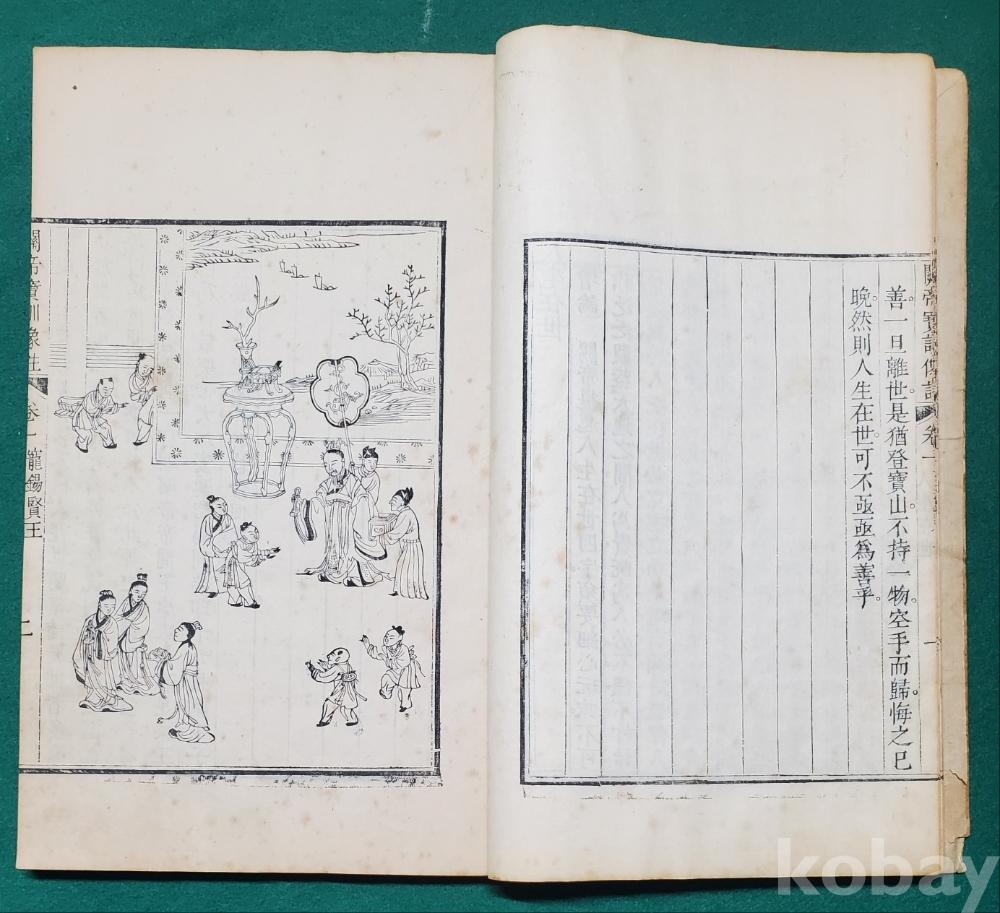 善一旦離世是猶登寶山不持一物空手而歸悔之已
晚然則人生在世可不亟亟爲善乎
關帝寶訓像註
卷一
寵錫賢王
二
kobay